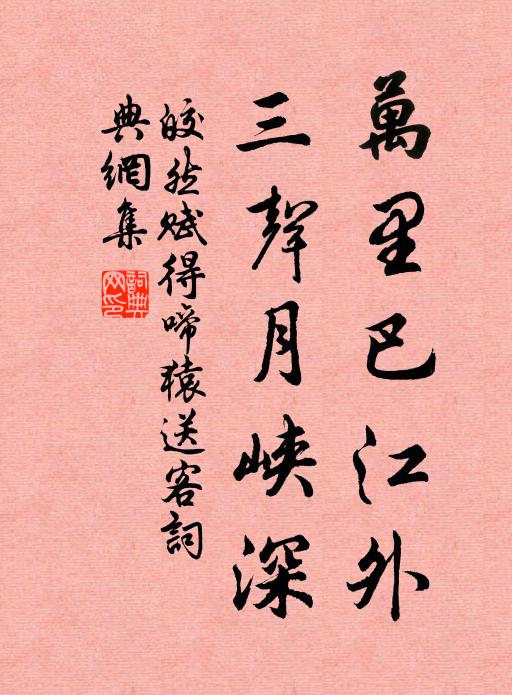 萬里巴江外
三聲月峽深
皎然賦得啼猿送客詞
典網集
詞典網印